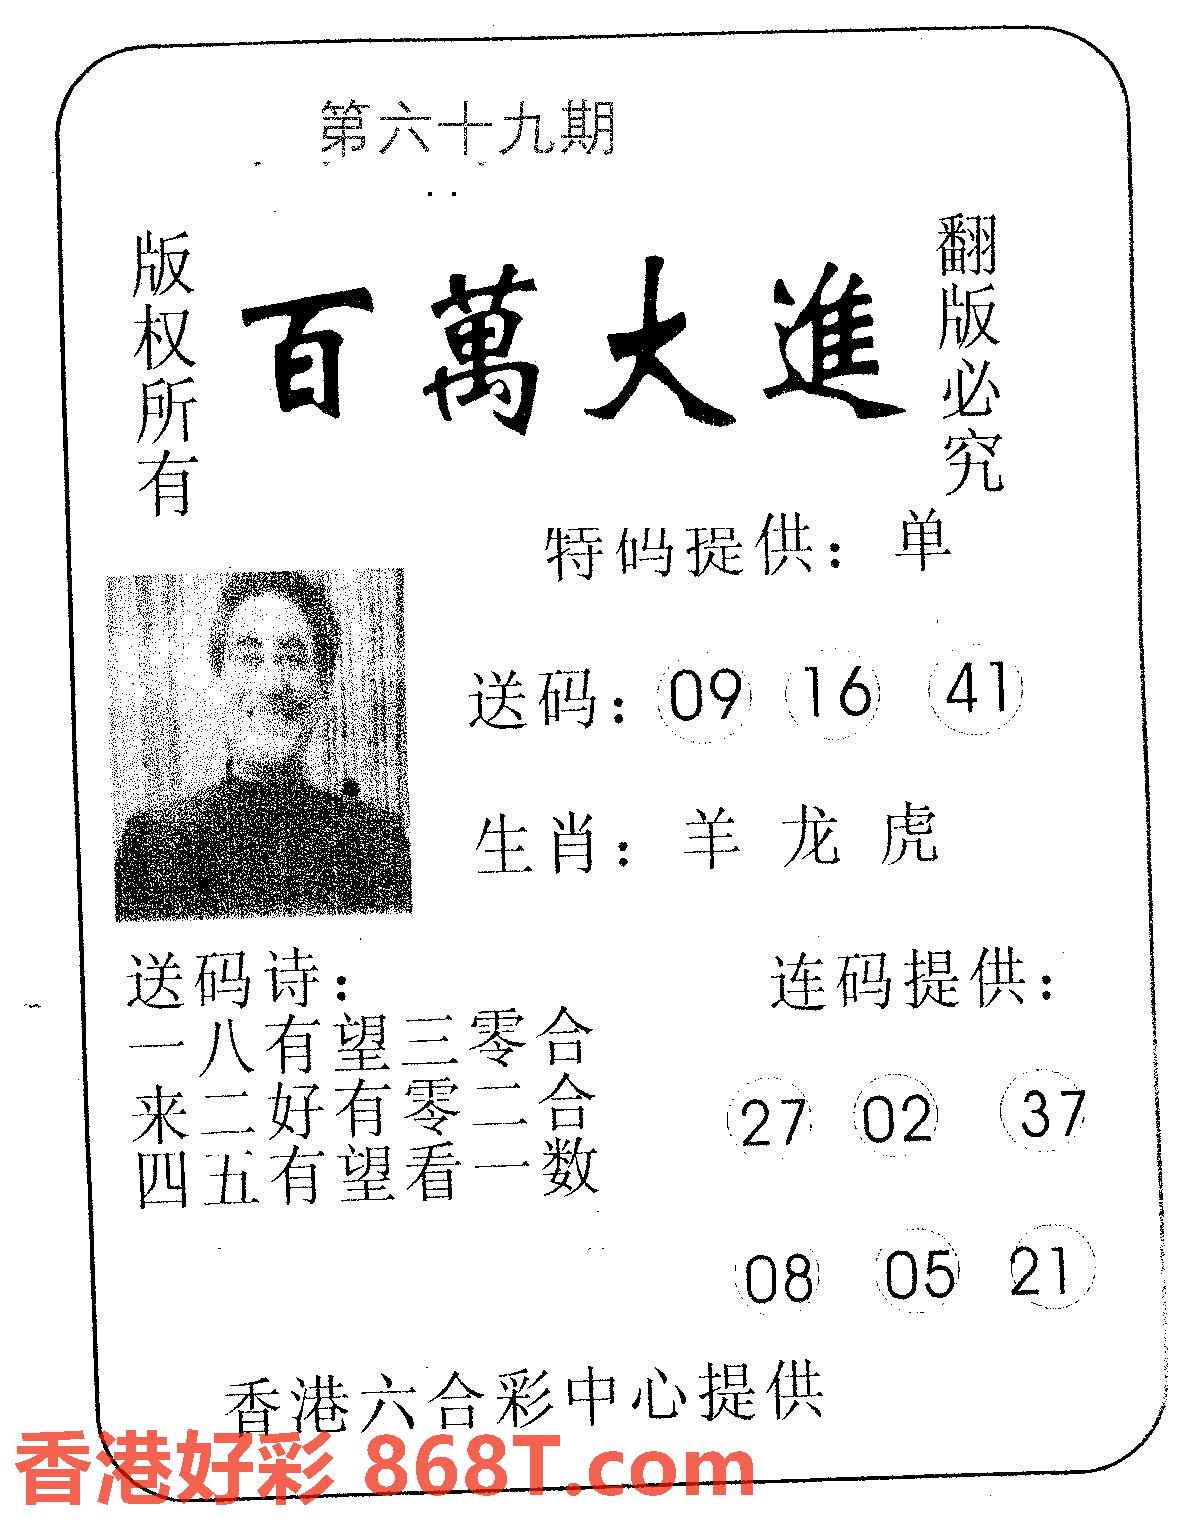 第六十九期
版权所有
百萬大進
翻版必究
特码提供：单
送码：09 16 41
生肖：羊 龙 虎
送码诗：
一八有望三零合
来二好有零二合
四五有望看一数
连码提供：
27 02 37
08 05 21
香港六合彩中心提供
香港好彩 868T.com